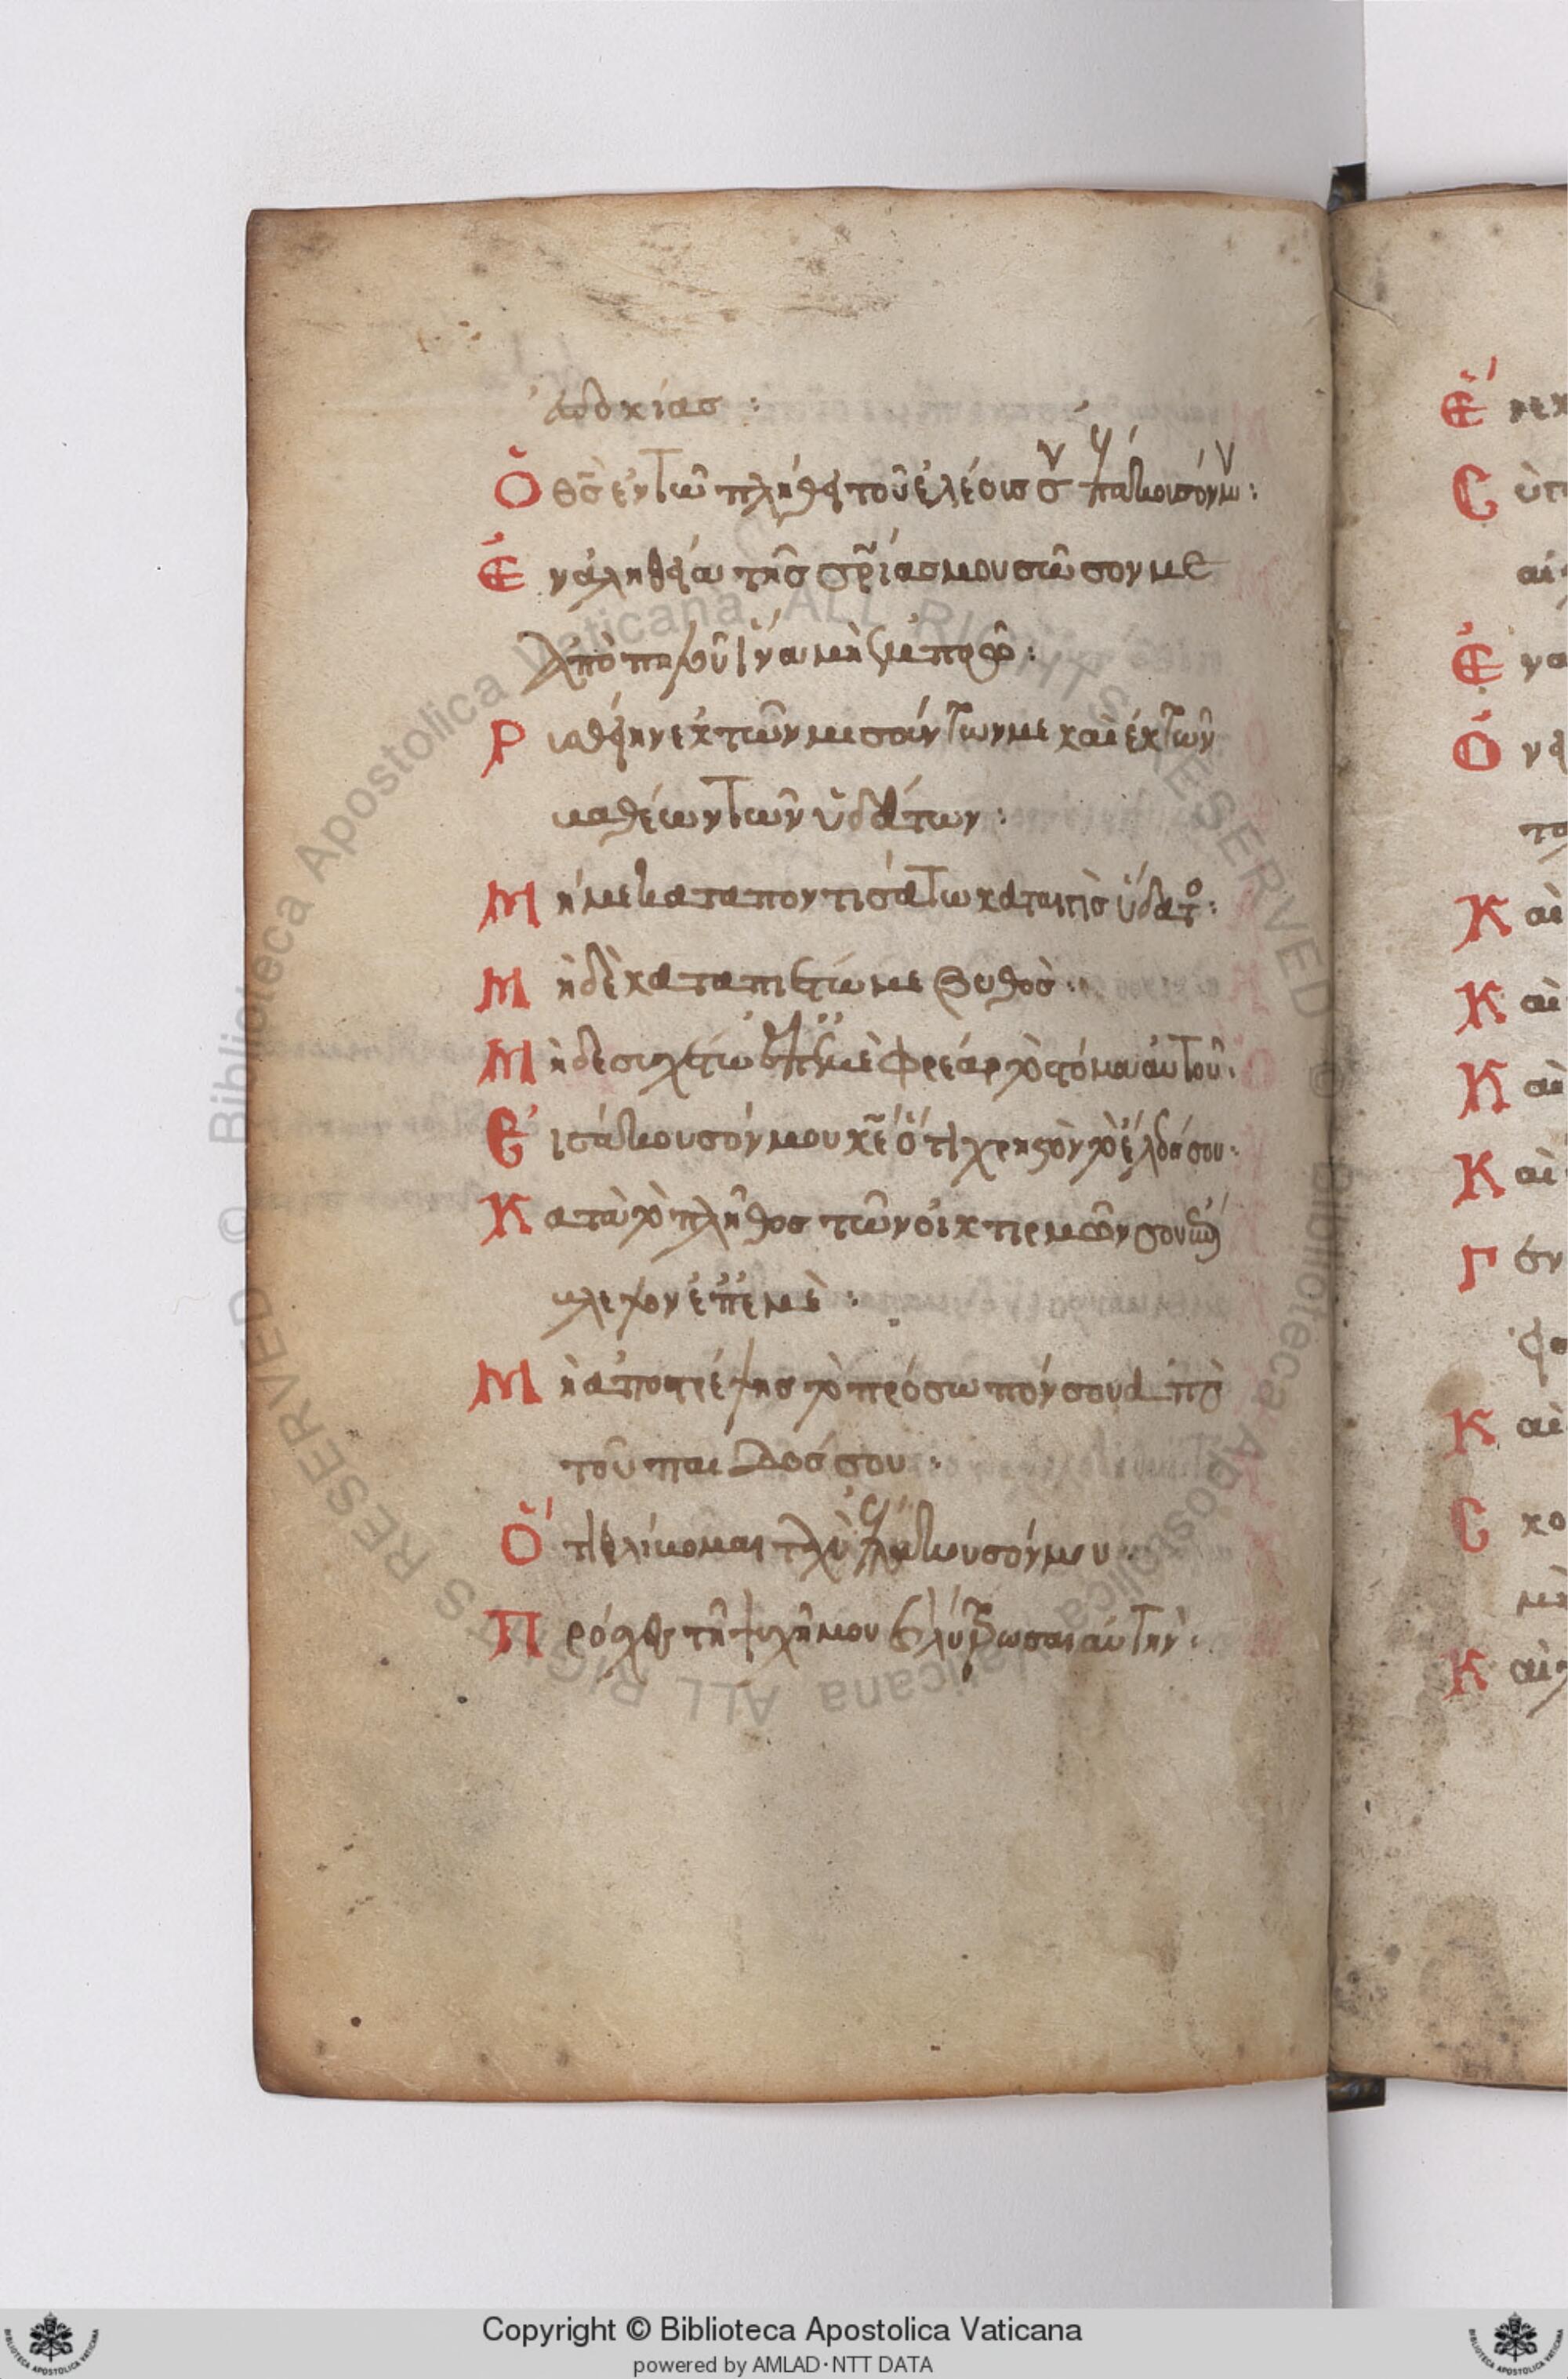 εὐδοκίας :
Ὁ θς ἐν τῶ πλήθει τοῦ ἐλέους σου ἐπάκουσόν μου :
Ἐν ἀληθεία τῆς σρίας μου σῶσόν με
ἀπὸ πηλοῦ ἵνα μὴ ἐμπαγῶ :
Ρυσθείην ἐκ τῶν μισούντων με καὶ ἐκ τῶν
βαθέων τῶν ὑδάτων :
Μή με καταποντισάτω καταιγὶς ὕδατος :
Μὴ δὲ καταπιέτω με βυθός :
Μὴ δὲ συσχέτω ἐπ' ἐμὲ φρέαρ τὸ στόμα αὐτοῦ :
Εἰσάκουσόν μου κε ὅτι χρηστὸν τὸ ἔλεός σου :
Κατὰ τὸ πλῆθος τῶν οἰκτιρμῶν σου ἐπί
βλεψον ἐπ' ἐμέ :
Μὴ ἀποστρέψης τὸ πρόσωπόν σου ἀπὸ
τοῦ παιδός σου :
Ὅτι θλίβομαι ταχὺ ἐπάκουσόν μου :
Πρόσχες τῆ ψυχῆ μου καὶ λύτρωσαι αὐτήν :
Ἐ
Σ
Ἐ
Ὁ
Κ αὶ
Κ αὶ
Κ αὶ
Κ αὶ
Κ αὶ
Κ αὶ
Copyright © Biblioteca Apostolica Vaticana
powered by AMLAD·NTT DATA